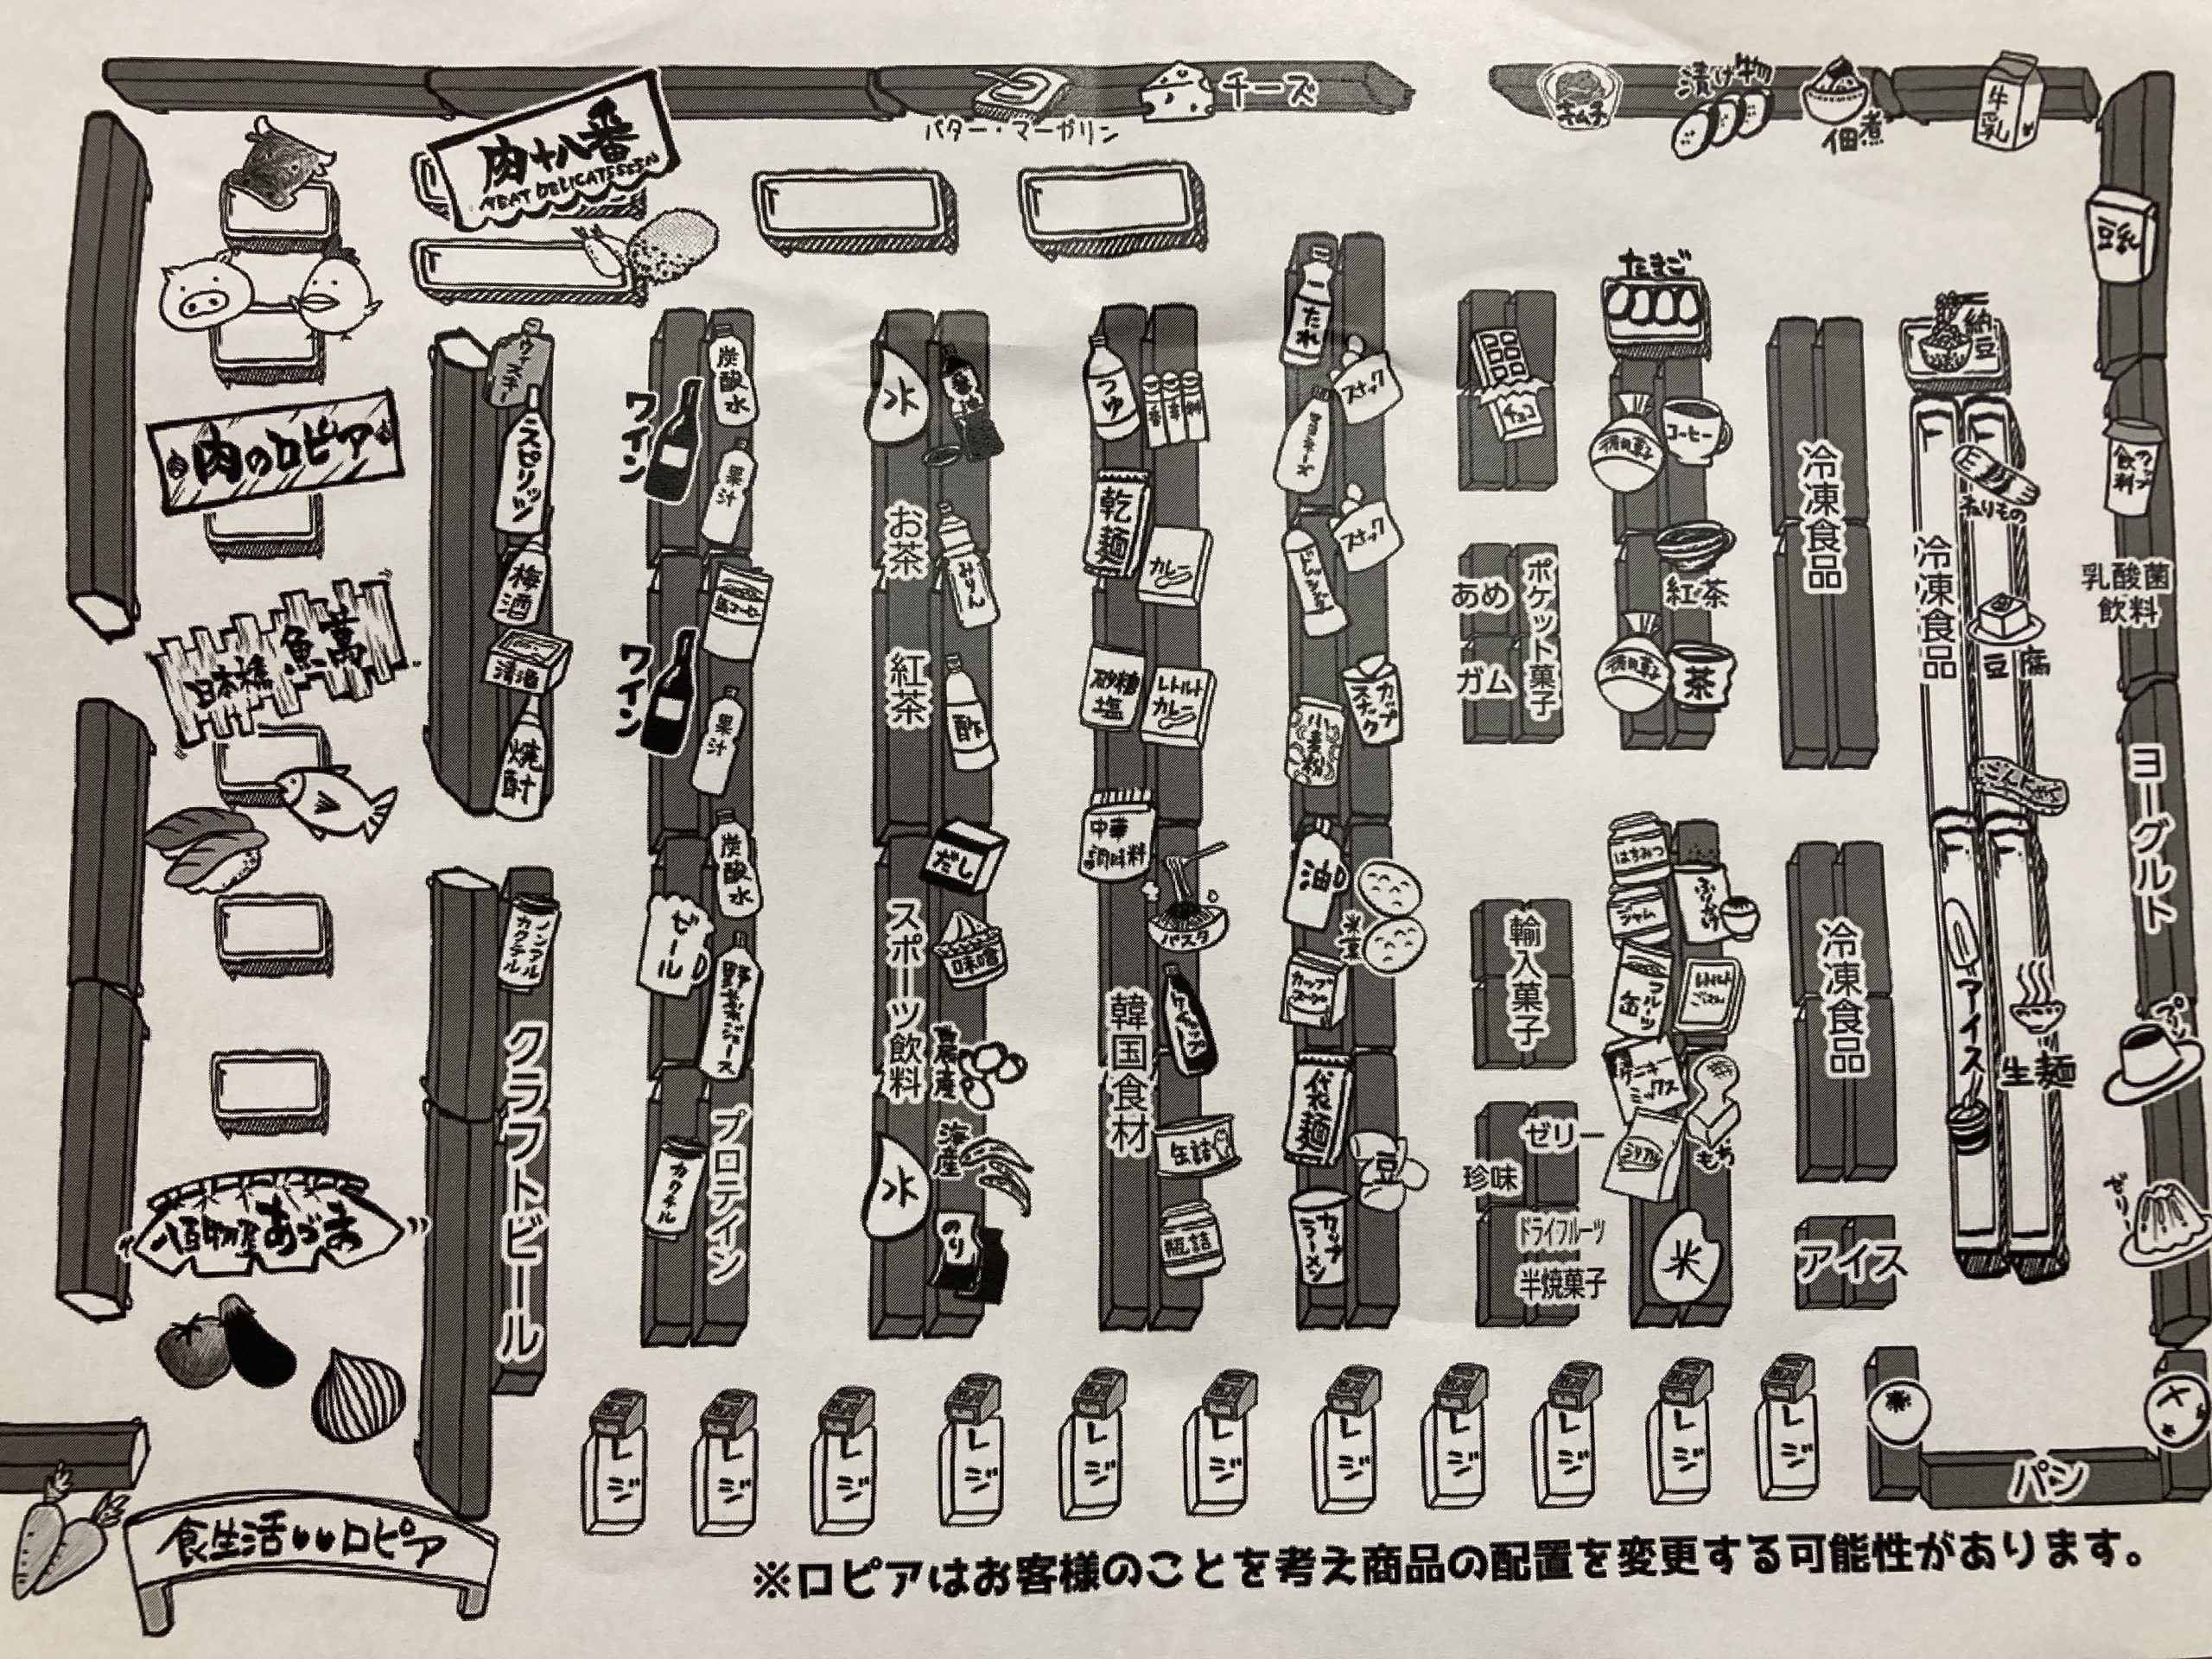 チーズ
バター・マーガリン
キムチ
漬け物
佃煮
牛乳
豆乳
肉十八番
MEAT DELICATESSEN
肉のロピア
日本橋 魚萬
八百物屋あづま
食生活♥♥ロピア
ウィスキー
スピリッツ
梅酒
清酒
焼酎
ノンアルカクテル
クラフトビール
ワイン
ワイン
ビール
カクテル
炭酸水
果汁
缶フード
果汁
炭酸水
野菜ジュース
プロテイン
水
お茶
紅茶
スポーツ飲料
水
醤油
みりん
酢
だし
味噌
農産
海産
のり
つゆ
乾麺
砂糖
塩
中華
調味料
韓国食材
香辛料
カレー
レトルト
カレー
パスタ
ケチャップ
缶詰
瓶詰
たれ
マヨネーズ
ドレッシング
小麦粉
油
カップ
スープ
袋麺
カップ
ラーメン
スナック
スナック
カップ
スナック
米菓
豆
チョコ
あめ
ガム
ポケット菓子
輸入菓子
ゼリー
珍味
ドライフルーツ
半焼菓子
たまご
徳用菓子
コーヒー
紅茶
徳用菓子
茶
はちみつ
ジャム
フルーツ
缶
シリアル
ふりかけ
レトルト
ごはん
もち
米
冷凍食品
冷凍食品
アイス
納豆
冷凍食品
ねりもの
豆腐
こんにゃく
アイス
生麺
カップ
飲料
乳酸菌
飲料
ヨーグルト
プリン
ゼリー
パン
レジ
レジ
レジ
レジ
レジ
レジ
レジ
レジ
レジ
レジ
レジ
※ロピアはお客様のことを考え商品の配置を変更する可能性があります。